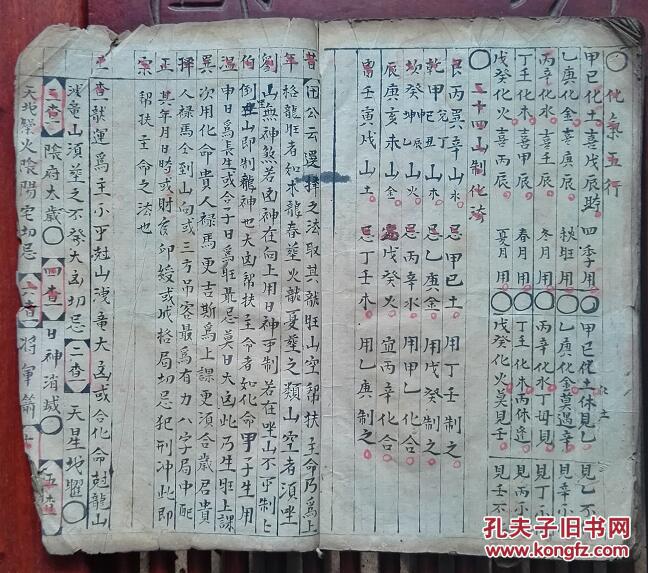 化氣五行
甲己化土喜戊辰時 四季用 甲己化土休見乙 見乙不
乙庚化金喜庚辰 秋旺用 乙庚化金莫遇辛 見辛小
丙辛化水喜壬辰 冬月用 丙辛化水丁毋見 見丁小
丁壬化木喜甲辰 春月用 丁壬化木丙休逢 見丙小
戊癸化火喜丙辰 夏月用 戊癸化火莫見壬 見壬不
二十四山制化
艮丙巽辛山水 忌甲己土 用丁壬制之
乾甲 兌丁巳丑山木 忌乙庚金 用戊癸制之
坎癸申辰坤乙山火 忌丙辛水 用甲乙化合
辰庚亥未山金 忌戊癸火 宜丙辛化合
壬寅戌山土 忌丁壬木 用乙庚制之
昔因公云選擇之法取其龍旺山空幫扶主命乃爲上
年格龍旺者如木龍春葬火龍夏葬之類山空者須坐
山無神煞若凶神在向上用日神可制若在坐山不可制
伯倒山即制龍神也大凶幫扶主命者如化命甲子生用
温申日爲長生或合子日爲旺最忌莫日大凶此乃生旺上課
異次用化命貴人禄馬更吉斯爲上課更須合歲君貴
擇人禄馬全到山向或三方吊客最爲有力八字局中配
正其年月日時或財官印綬或成格局切忌犯刑冲此即
宗幫扶主命之法也
一查龍運爲主小可尅山洩竜大凶或合化命尅龍山
洩竜山須葬之不發大凶切忌 二查 天星地曜
三查 陰府太歲 四查 日神消滅 五查
天地禁火陰陽宅切忌 六查 将軍箭
孔夫子旧书网
www.kongfz.com